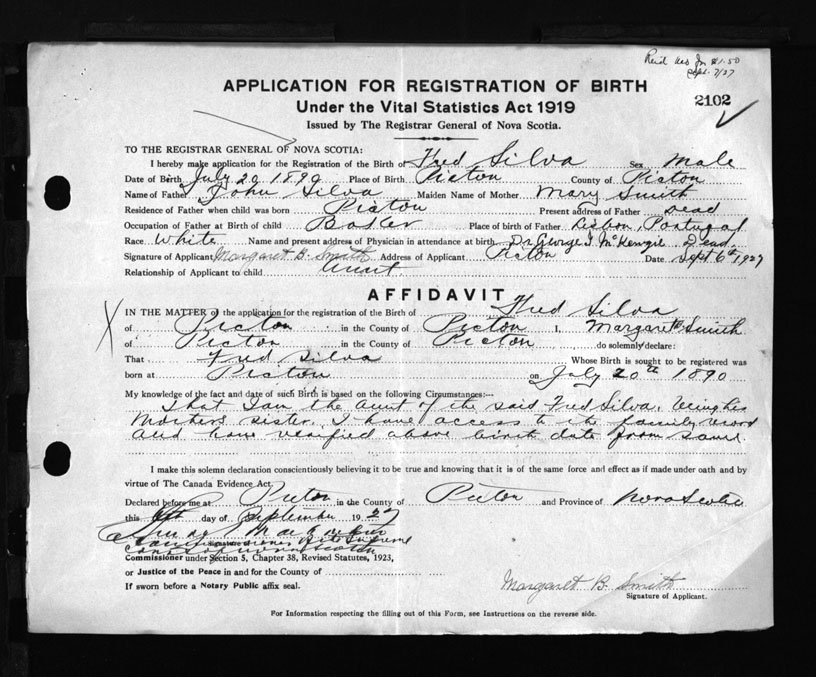 $1.50
Sept. 7/27
APPLICATION FOR REGISTRATION OF BIRTH
Under the Vital Statistics Act 1919
2102
Issued by The Registrar General of Nova Scotia.
TO THE REGISTRAR GENERAL OF NOVA SCOTIA:
I hereby make application for the Registration of the Birth of Fred Silva Sex Male
Date of Birth July 20 1890 Place of Birth Pictou County of Pictou
Name of Father John Silva Maiden Name of Mother Mary Smith
Residence of Father when child was born Pictou Present address of Father Dead
Occupation of Father at Birth of child Place of birth of Father Lisbon, Portugal
Race White Name and present address of Physician in attendance at birth Dr George I. McKenzie Dead.
Signature of Applicant Margaret B. Smith Address of Applicant Pictou Date Sept 6th 1927
Relationship of Applicant to child Aunt
AFFIDAVIT
IN THE MATTER of the application for the registration of the Birth of Fred Silva
of Pictou in the County of Pictou I, Margaret Smith
of Pictou in the County of Pictou do solemnly declare:
That Fred Silva Whose Birth is sought to be registered was
born at Pictou on July 20th 1890
My knowledge of the fact and date of such Birth is based on the following Circumstances:—
That I am the aunt of the said Fred Silva, being his
Mother's sister. I have access to the family record
and have verified above birth date from same.
I make this solemn declaration conscientiously believing it to be true and knowing that it is of the same force and effect as if made under oath and by
virtue of The Canada Evidence Act.
Declared before me at Pictou in the County of Pictou and Province of Nova Scotia
this 6th day of September 1927
Supreme
Court of Nova Scotia
Commissioner under Section 5, Chapter 38, Revised Statutes, 1923,
or Justice of the Peace in and for the County of
If sworn before a Notary Public affix seal.
Margaret B. Smith
Signature of Applicant.
For Information respecting the filling out of this Form, see Instructions on the reverse side.